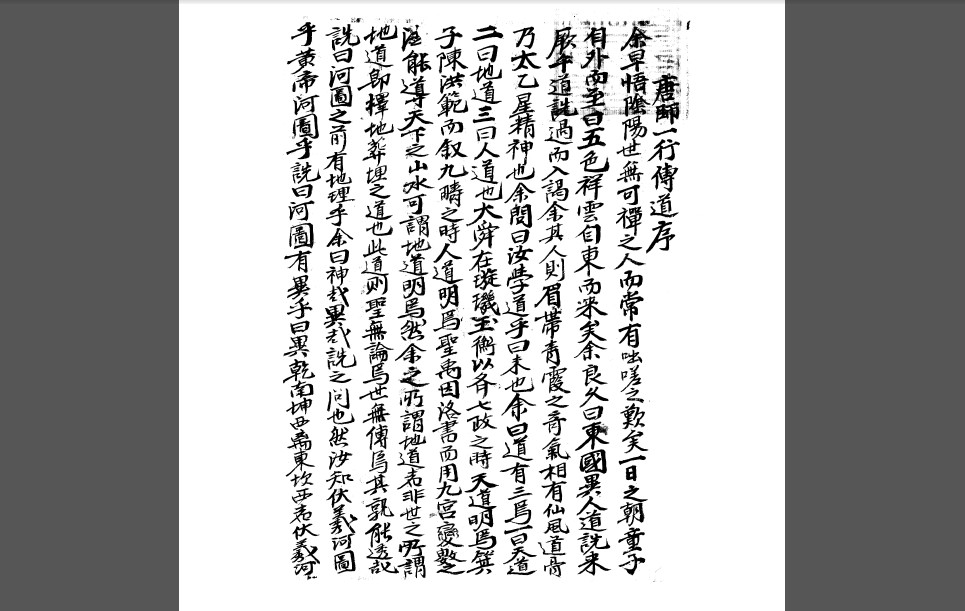 唐師一行傳道序
余早悟陰陽世無可禪之人而常有咄嗟之歎矣一日之朝童子
自外而至曰五色祥雲自東而來矣余良久曰東國異人道詵來
厥午道詵過而入謁余其人則眉帶青霞之奇氣相有仙風道骨
乃太乙星精神也余問曰汝學道乎曰未也余曰道有三焉一曰天道
二曰地道三曰人道也大舜在璇璣玉衡以齊七政之時天道明焉箕
子陳洪範而叙九疇之時人道明焉聖禹因洛書而用九宮變數之
法能導天下之山水可謂地道明焉然余之所謂地道者非世之所謂
地道卽擇地葬埋之道也此道則聖無論焉世無傳焉其孰能透哉
詵曰河圖之前有地理乎余曰神哉異哉詵之问也然汝知伏羲河圖
乎黃帝河圖乎詵曰河圖有異乎曰異乾南坤西离東坎西者伏羲河